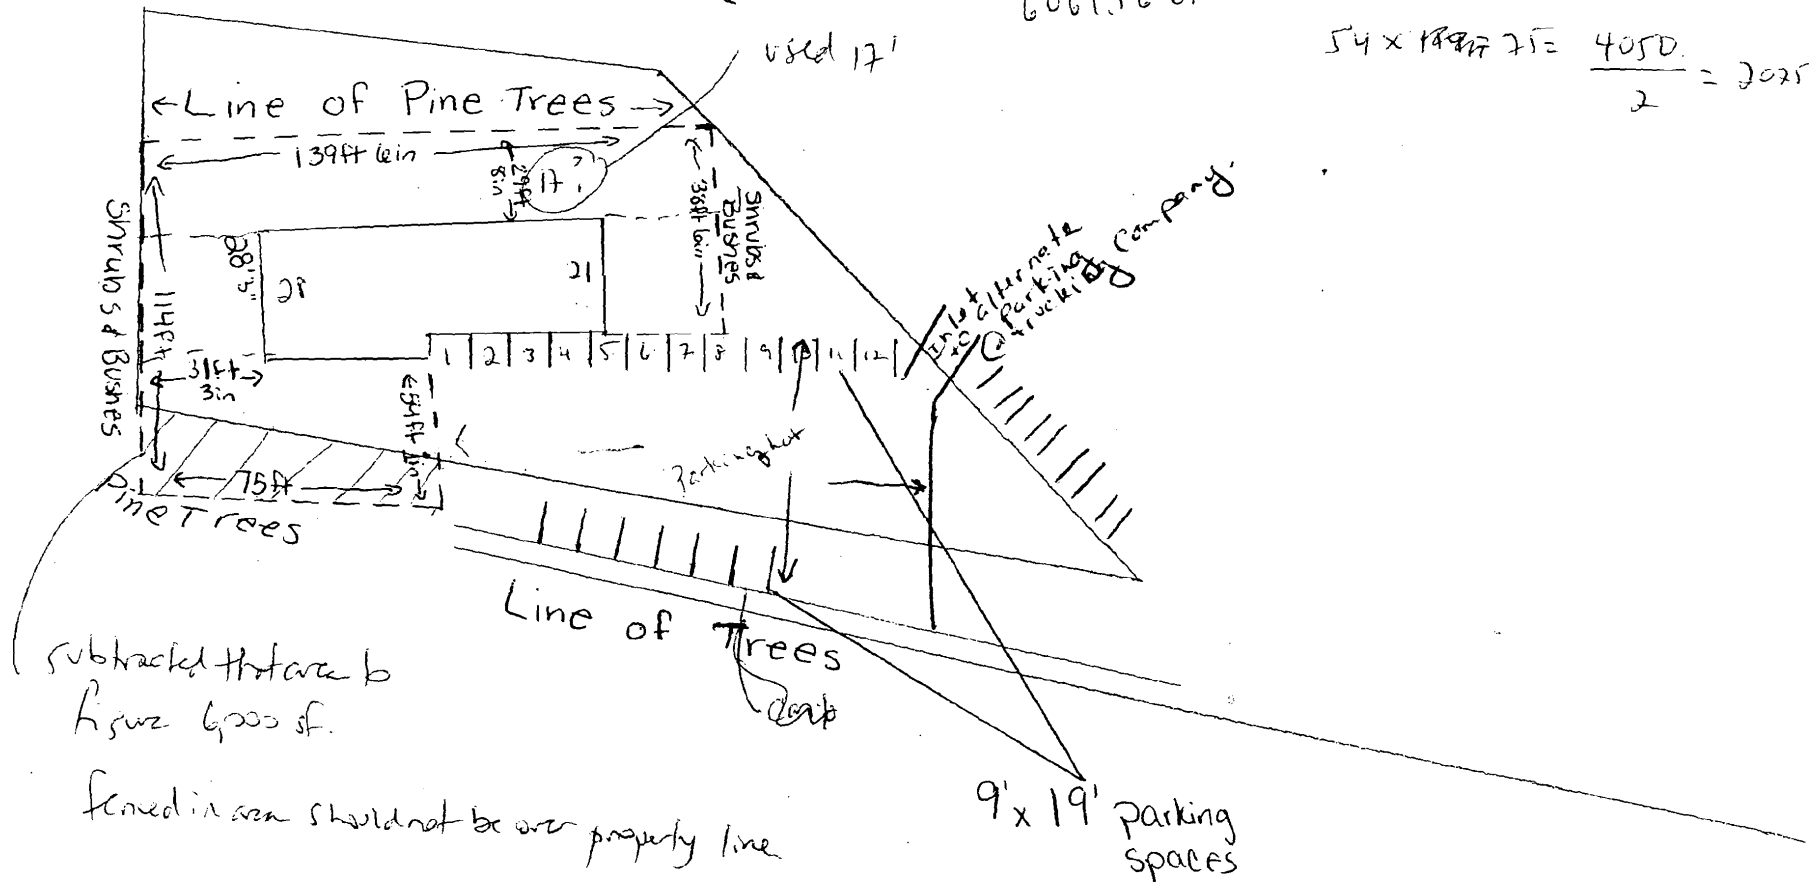 used 17'
54 × 75 = 4050
2
= 2025
←Line of Pine Trees→
139ft 6in
29ft
8in
17'?
38ft 6in
Shrubs &
Bushes
Shrubs & Bushes
114ft
28'5"
28
21
31ft
3in
1 2 3 4 5 6 7 8 9 10 11 12
Inlet
to alternate
parking
@ trucking Company
54ft 6in
Parking lot
75ft
Pine Trees
Line of Trees
subtracted that area to
figure 6,000 sf.
fenced in area should not be over property line
9' x 19' parking
spaces